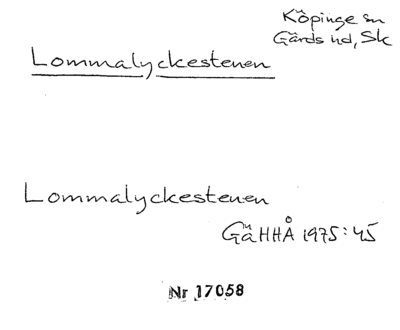 Köpinge sn
Gärds hd, Sk
Lommalyckestenen
Lommalyckestenen
GäHHÅ 1975:45
Nr 17058